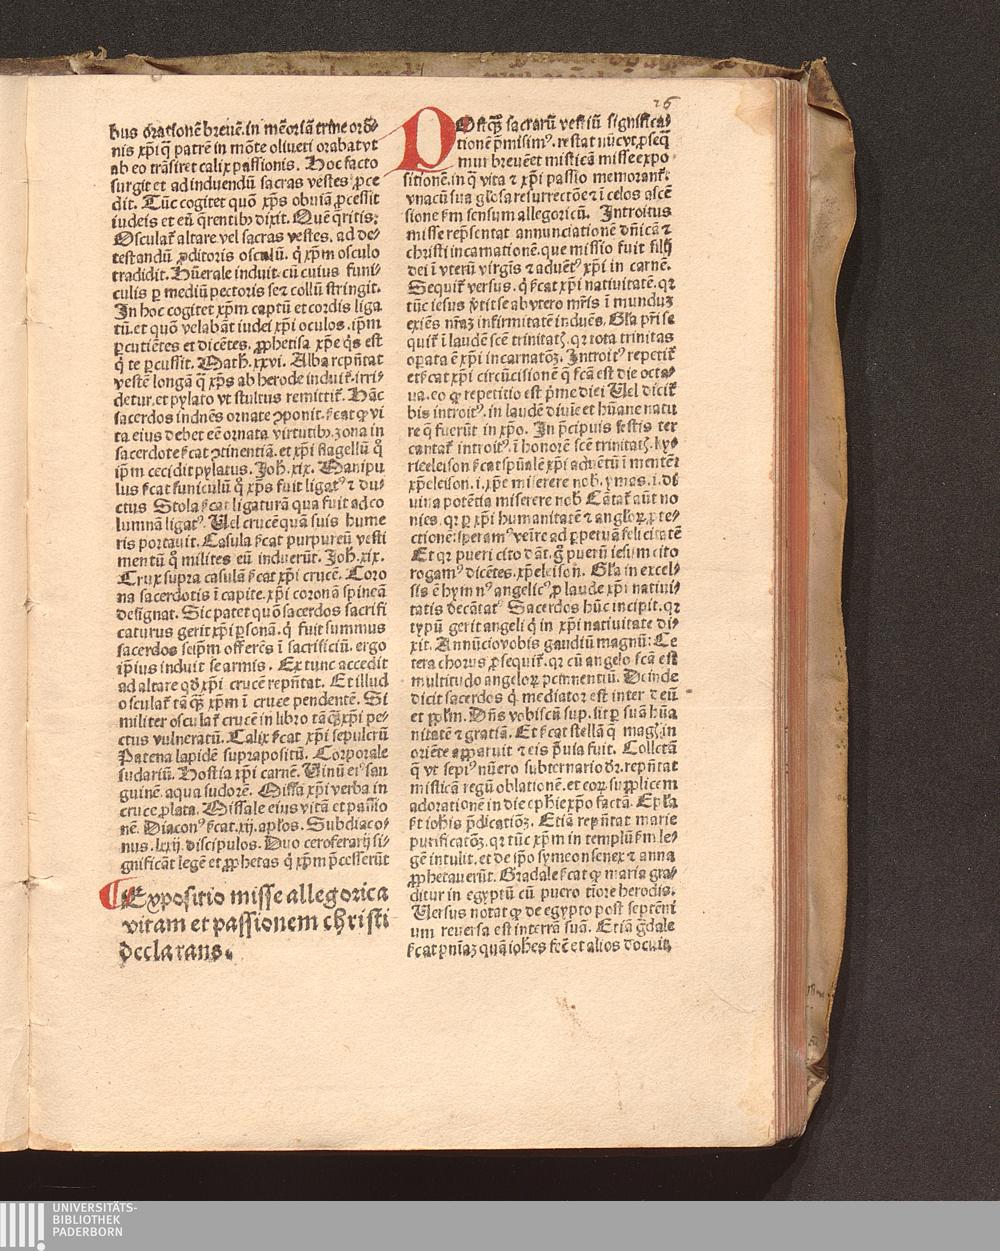 26
bus orationē breuē. in mēoriā trine ordi⸗
nis xp̄i q̄ patrē in mōte oliueti orabat vt
ab eo trāsiret calix passionis. Hoc facto
surgit et ad induendū sacras vestes ꝓce
dit. Tūc cogitet quō xp̄s obuiā ꝓcessit
iudeis et eū q̄rentibꝫ dixit. Quē q̄ritis.
Osculat᷑ altare vel sacras vestes. ad de⸗
testandū ꝓditoris osculū. q̇ xp̄m osculo
tradidit. Hūerale induit cū cuius funi⸗
culis ꝑ mediū pectoris se ⁊ collū stringit.
In hoc cogitet xp̄m captū et cordis liga
tū. et quō velabāt iudei xp̄i oculos. ip̄m
ꝑcutiētes et dicētes. ꝓphetisa xp̄e q̇s est
q̇ te ꝑcussit. Math. xxvi. Alba rep̄ntat
vestē longā q̄ xp̄s ab herode induit᷑. irri⸗
detur. et pylato vt stultus remittit᷑. Hāc
sacerdos induēs ornate ꝯponit. s̄cat ꝙ vi
ta eius debet eē ornata virtutibꝫ. zona in
sacerdote s̄cat ꝯtinentiā. et xp̄i flagellū q̊
ip̄m cecidit pylatus. Joh. xix. Manipu
lus s̄cat funiculū q̊ xp̄s fuit ligatꝰ ⁊ du⸗
ctus Stola s̄cat ligaturā qua fuit ad co
lumnā ligatꝰ. Vel crucē quā suis hume
ris portauit. Casula s̄cat purpureū vesti
mentū q̊ milites eū induerūt. Joh. xix.
Crux supra casulā s̄cat xp̄i crucē. Coro
na sacerdotis ī capite. xp̄i coronā spineā
designat. Sic patet quō sacerdos sacrifi
caturus gerit xp̄i ꝑsonā. q̇ fuit summus
sacerdos seip̄m offerēs ī sacrificiū. ergo
ip̄ius induit se armis. Ex tunc accedit
ad altare qd̓ xp̄i crucē rep̄ntat. Et illud
osculat᷑ tāqꝫ xp̄m ī cruce pendentē. Si
militer osculat᷑ crucē in libro tāqꝫ xp̄i pe⸗
ctus vulneratū. Calix s̄cat xp̄i sepulcrū
Patena lapidē suprapositū. Corporale
sudariū. Hostia xp̄i carnē. Vinū eiꝰ san
guinē. aqua sudorē. Missa xp̄i verba in
cruce ꝓlata. Missale eius vitā et passio
nē. Diaconꝰ s̄cat. xij. apl̄os. Subdiaco⸗
nus. lxxij. discipulos. Duo ceroferarij si⸗
gnificāt legē et ꝓphetas q̇ xp̄m p̄cesserūt
¶ Expositio misse allegorica
vitam et passionem christi
declarans.
POstqꝫ sacrarū vestiū significa⸗
tionē p̄misimꝰ. restat nūc vt ꝓseq̄
mur breuē et misticā misse expo
sitionē. in q̄ vita ⁊ xp̄i passio memorant᷑.
vnacū sua gl̄osa resurrectōe ⁊ ī celos ascē
sione s̄m sensum allegoricū. Introitus
misse rep̄sentat annunciationē dn̄icā ⁊
christi incarnationē. que missio fuit filij
dei ī vterū virgīs ⁊ aduētꝰ xp̄i in carnē.
Sequit᷑ versus. q̇ s̄cat xp̄i natiuitatē. qr
tūc iesus p̄tit se ab vtero mr̄is ī munduꝫ
exiēs nr̄aꝫ infirmitatē induēs. Gl̄a pr̄i se
quit᷑ ī laudē scē trinitatꝭ. qr tota trinitas
oꝑata ē xp̄i incarnatōꝫ. Introitꝰ repetit᷑
et s̄cat xp̄i circūcisionē q̄ fc̄a est die octa⸗
ua. eo ꝙ repetitio est p̄me diei Vel dicit᷑
bis introitꝰ. in laudē diuie et hūane natu
re q̄ fuerūt in xp̄o. In p̄cipuis festis ter
cantat᷑ introitꝰ. ī honorē scē trinitatꝭ. ky⸗
rieeleison s̄cat sp̄ualē xp̄i aduētū ī mentē.
xp̄eleison. i. xp̄e miserere nob̓. ymas. i. di
uina potētia miserere nob̓ Cātat᷑ aūt no
nies. qr ꝑ xp̄i humanitatē ⁊ angloꝝ ꝓte⸗
ctionē speramꝰ veīre ad ꝑpetuā felicitatē
Et qr pueri cito dāt. g̊ puerū iesum cito
rogamꝰ dicētes. xp̄eleison. Gl̄a in excel⸗
sis ē hymnꝰ angelicꝰ ꝓ laude xp̄i natiui⸗
tatis decātatꝰ Sacerdos hūc incipit. qr
typū gerit angeli q̇ in xp̄i natiuitate di⸗
xit. Annūcio vobis gaudiū magnū: Ce
tera chorus ꝓsequit᷑. qr cū angelo fc̄a est
multitudo angeloꝝ ꝑcinentiū. Deinde
dicit sacerdos q̇ mediator est inter deū
et pp̄l̄m. Dn̄s vobiscū sup. sit ꝑ suā hūa
nitatē ⁊ gratiā. Et s̄cat stellā q̄ magꝭ in
oriēte apparuit ⁊ eis p̄uia fuit. Collectā
q̄ vt sepiꝰ nūero subternario dr̄. rep̄ntat
misticā regū oblationē. et eoꝝ supplicem
adorationē in die ep̄hie xp̄o factā. Ep̄l̄a
s̄t ioh̄is p̄dicatiōꝫ. Etiā rep̄ntat marie
purificatōꝫ. qr tūc xp̄m in templū s̄m le⸗
gē intulit. et de ip̄o symeon senex ⁊ anna
ꝓphetauerūt. Gradale s̄cat ꝙ maria gra⸗
ditur in egyptū cū puero tīore herodis.
Versus notat ꝙ de egypto post septēni
um reuersa est in terrā suā. Etiā g̊dale
s̄cat pn̄iaꝫ quā ioh̄es fec̄ et alios docuit.
UNIVERSITÄTS-
BIBLIOTHEK
PADERBORN